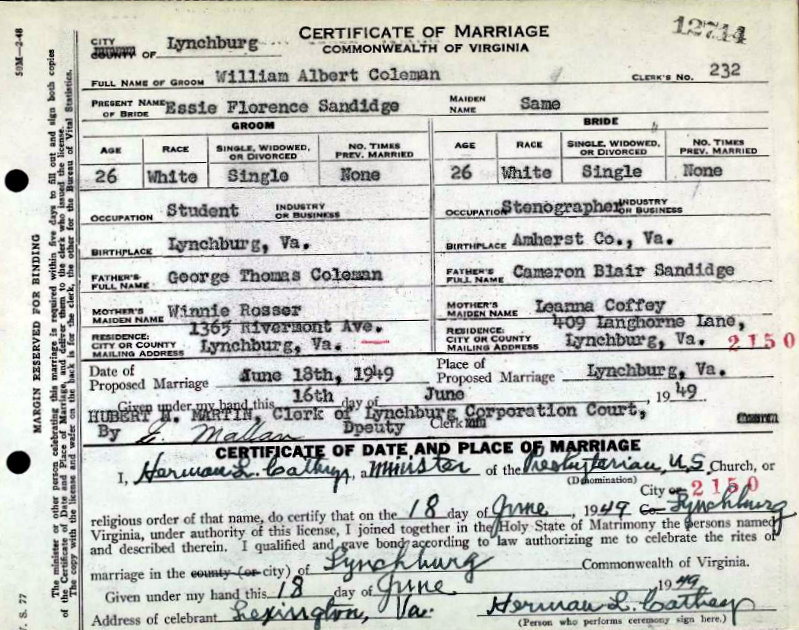 50M—2-48
MARGIN RESERVED FOR BINDING
The minister or other person celebrating this marriage is required within five days to fill out and sign both copies
of the Certificate of Date and Place of Marriage, and deliver them to the clerk who issued the license.
The copy with the license and wafer on the back is for the clerk, the other for the Bureau of Vital Statistics.
V. S. 77
CERTIFICATE OF MARRIAGE
COMMONWEALTH OF VIRGINIA
12744
CITY
COUNTY OF Lynchburg
FULL NAME OF GROOM William Albert Coleman CLERK'S NO. 232
PRESENT NAME OF BRIDE Essie Florence Sandidge MAIDEN NAME Same
GROOM BRIDE
AGE RACE SINGLE, WIDOWED, OR DIVORCED NO. TIMES PREV. MARRIED AGE RACE SINGLE, WIDOWED, OR DIVORCED NO. TIMES PREV. MARRIED
26 White Single None 26 White Single None
OCCUPATION Student INDUSTRY OR BUSINESS OCCUPATION Stenographer INDUSTRY OR BUSINESS
BIRTHPLACE Lynchburg, Va. BIRTHPLACE Amherst Co., Va.
FATHER'S FULL NAME George Thomas Coleman FATHER'S FULL NAME Cameron Blair Sandidge
MOTHER'S MAIDEN NAME Winnie Rosser MOTHER'S MAIDEN NAME Leanna Coffey
RESIDENCE: 1365 Rivermont Ave. RESIDENCE: 409 Langhorne Lane,
CITY OR COUNTY MAILING ADDRESS Lynchburg, Va. CITY OR COUNTY MAILING ADDRESS Lynchburg, Va. 2150
Date of Proposed Marriage June 18th, 1949 Place of Proposed Marriage Lynchburg, Va.
Given under my hand this 16th day of June 1949
HUBERT H. MARTIN, Clerk of Lynchburg Corporation Court,
By E. Mallan Dpeuty Clerk
CERTIFICATE OF DATE AND PLACE OF MARRIAGE
I, Herman L. Cathey, a minister of the Presbyterian, U.S. Church, or
(Denomination)
City or 2150
religious order of that name, do certify that on the 18 day of June, 1949 Co. Lynchburg
Virginia, under authority of this license, I joined together in the Holy State of Matrimony the persons named
and described therein. I qualified and gave bond according to law authorizing me to celebrate the rites of
marriage in the county (or city) of Lynchburg Commonwealth of Virginia.
Given under my hand this 18 day of June 1949
Address of celebrant Lexington, Va. Herman L. Cathey
(Person who performs ceremony sign here.)